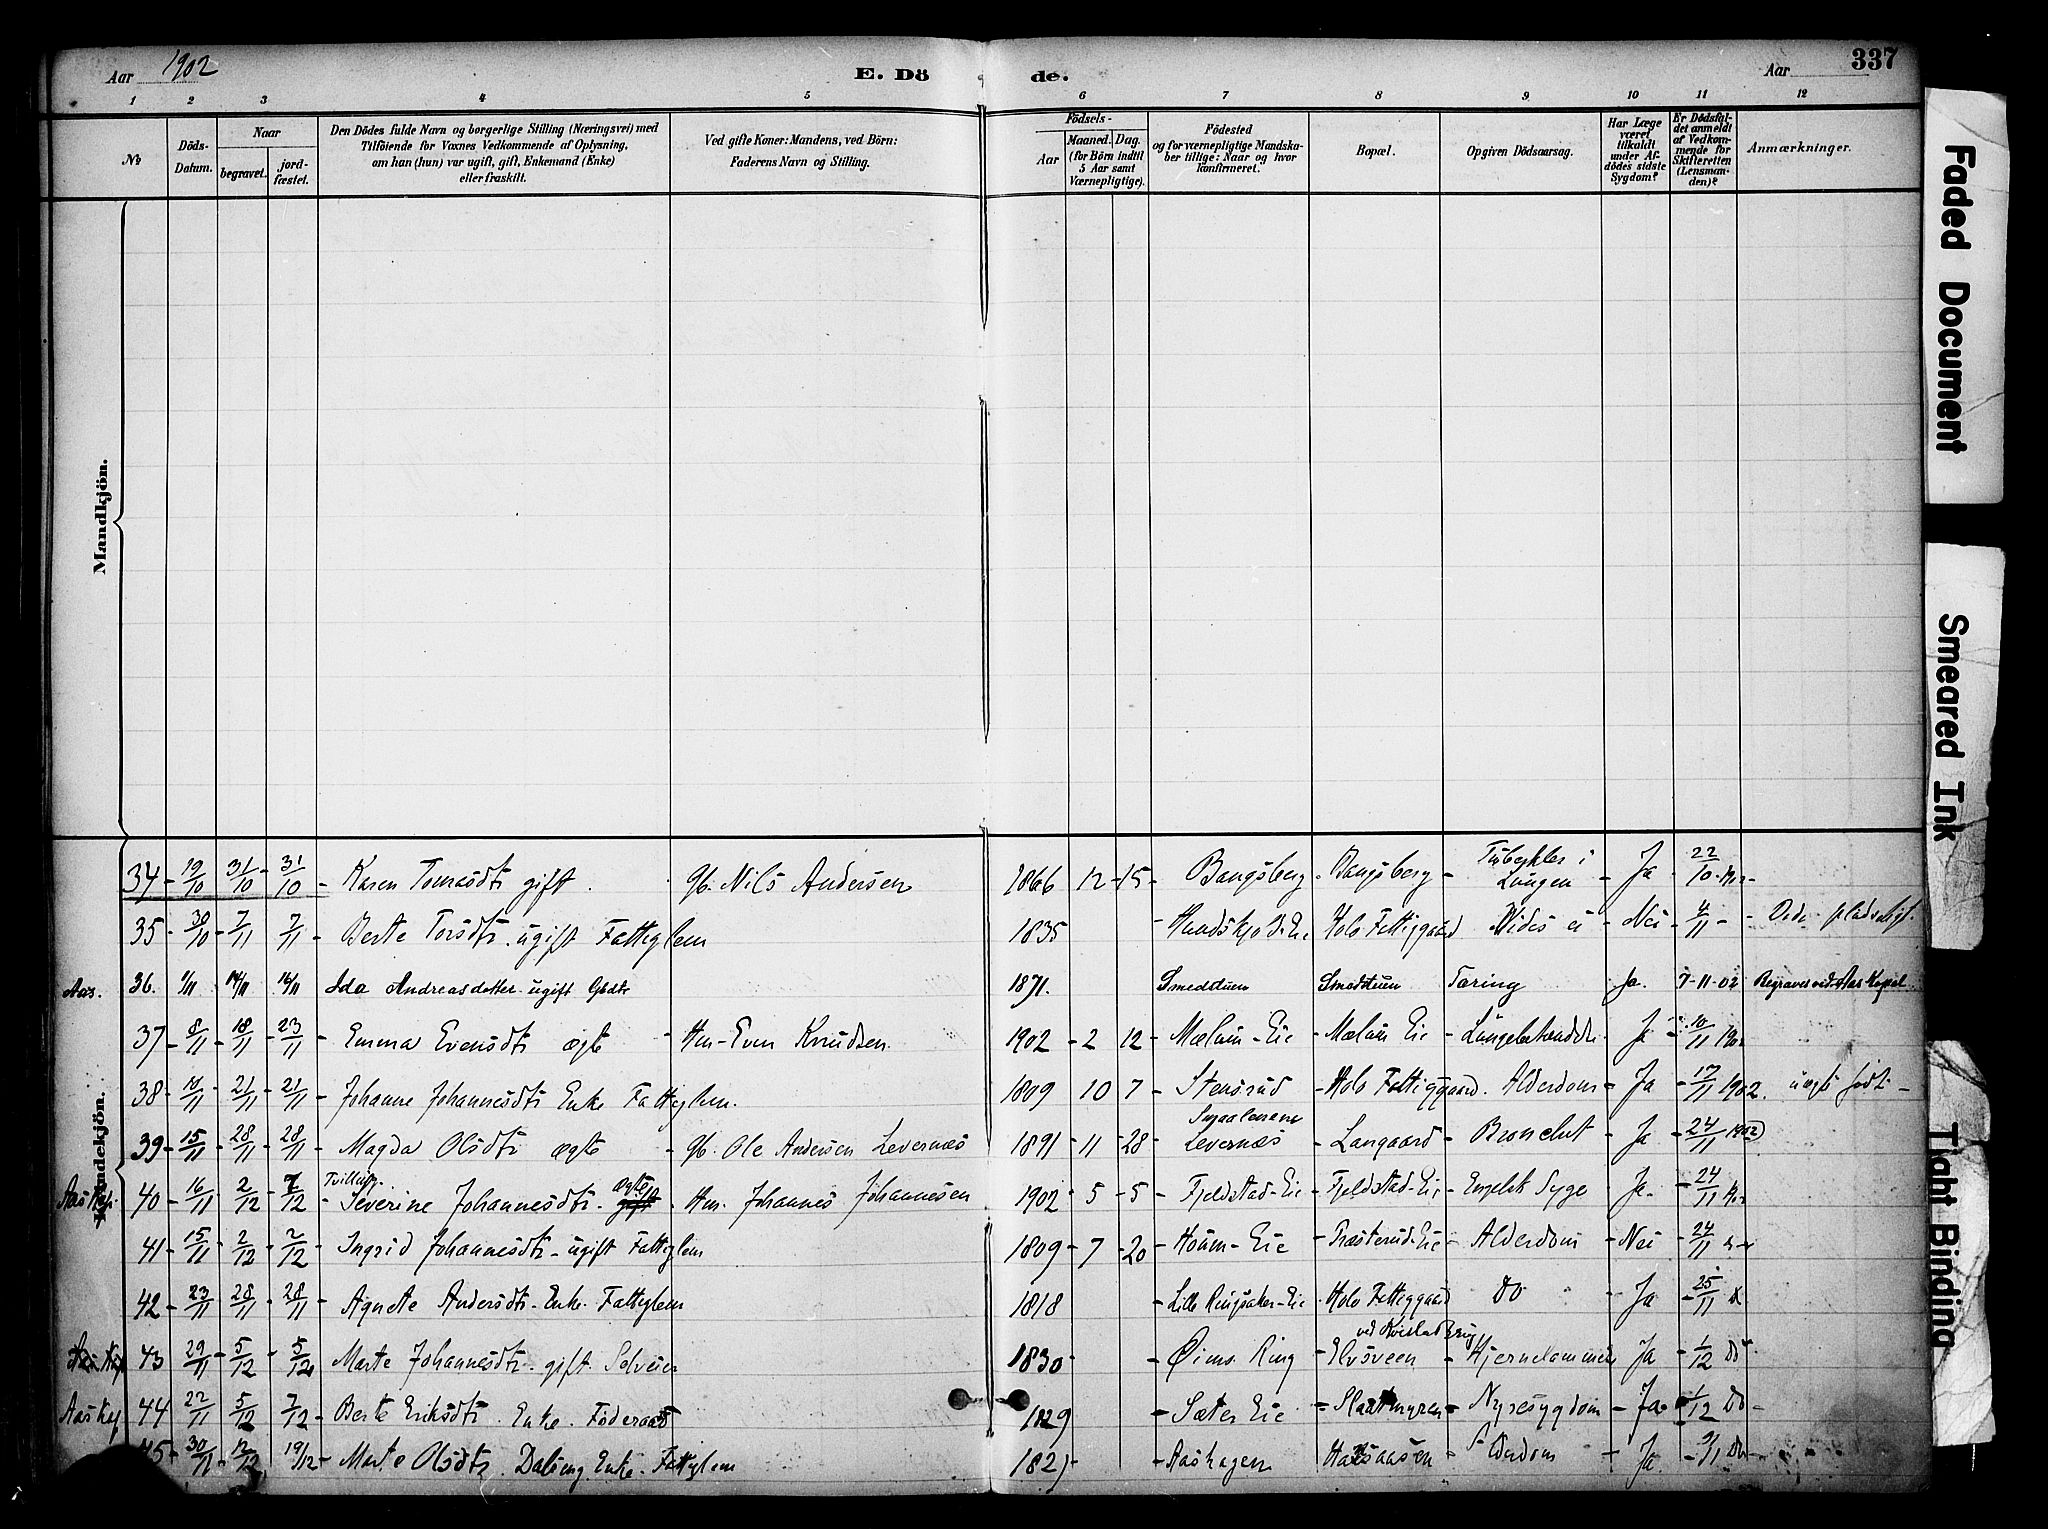 Aar 1902 E. Dö de. Aar 337
1 2 3 4 5 6 7 8 9 10 11 12
No
Döds-Datum.
Naar
begravet.
jordfæstet.
Den Dödes fulde Navn og borgerlige Stilling (Næringsvei) med
Tilföiende for Voxnes Vedkommende af Oplysning,
om han (hun) var ugift, gift, Enkemand (Enke)
eller fraskilt.
Ved gifte Koner: Mandens, ved Börn:
Faderens Navn og Stilling.
Födsels-
Aar
Maaned. Dag.
(for Börn indtil
5 Aar samt
Værnepligtige).
Födested
og for værnepligtige Mandska-
ber tillige: Naar og hvor
konfirmeret.
Bopæl.
Opgiven Dödsaarsag.
Har Læge
været
tilkaldt
under Af-
dödes sidste
Sygdom?
Er Dödsfal-
det anmeldt
af Vedkom-
mende for
Skifteretten
(Lensman-
den)?
Anmærkninger.
Mandkjön.
Kvindekjön.
34 - 19/10 - 31/10 - 31/10 - Karen Tomasdtr gift. Gb. Nils Andersen 1866 12 - 15 - Bangsberg - Bangsberg - Tuberkler i Lungen - Ja - 22/10
35 - 30/10 - 7/11 7/11 - Berte Torsdtr. ugift Fattiglem 1835 - Holo Fattiggaard Vides ei - Nei - 4/11 -
Aas. 36. 1/11 14/11 14/11 Ida Andreasdatter ugift 1871. Smedstuen Smedstuen Tæring Ja. 7-11-02 Begraves ved Aas Kapel
37 - 8/11 - 18/11 - 23/11 - Emma Evensdtr ægte - Hm - Even Knudsen. 1902 - 2 12 - Mælum - Eie - Mælum Eie - Lungebetændelse - Ja - 10/11
38 - 10/11 - 21/11 - 21/11 - Johanne Johannesdtr Enke Fattiglem. 1809 10 7 - Stensrud - Holo Fattiggaard. Alderdom - Ja - 17/11 1902.
39 - 15/11 - 28/11 - 28/11 - Magda Olsdtr ægte - Gb. Ole Andersen Levernæs 1891 - 11 - 28 Smaalenene Levernæs - Langaard - Bronchit - Ja - 24/11 1902
40 - 16/11 - 2/12 - 7/12 - Tvilling. Severine Johannesdtr - ægte - Hm. Johannes Johannesen 1902 - 5 - 5 - Fjeldstad - Eie - Fjeldstad - Eie - Engelsk Syge - Ja - 24/11
41 - 15/11 - 2/12 - 2/12 - Ingrid Johannesdtr - ugift Fattiglem 1809 - 7 - 20 - Eie - Træsterud - Eie - Alderdom - Nei - 24/11
42 - 23/11 28/11 - 28/11 - Agnete Andersdtr - Enke. Fattiglem 1818 - Lille Ringsaker - Eie - Holo Fattiggaard Do - Ja - 25/11
Aas Kap 43 - 29/11 - 5/12 - 5/12 - Marte Johannesdtr. gift. 1830 - Øims. Ring - Elvsveen - Ja - 1/12 Do -
Aas Kap 44 - 22/11 - 5/12 7/12 - Berte Eriksdtr. Enke. Føderaad 1829 - Sæter Eie - Slaatmyren - Nyresygdom - Ja - 1/12 Do -
45 - 30/11 - 12/12 19/12 - Marte Olsdtr. Enke - Fattiglem - Aashagen - Alderdom - Ja. Do -
Faded Document
Smeared Ink
Tight Binding